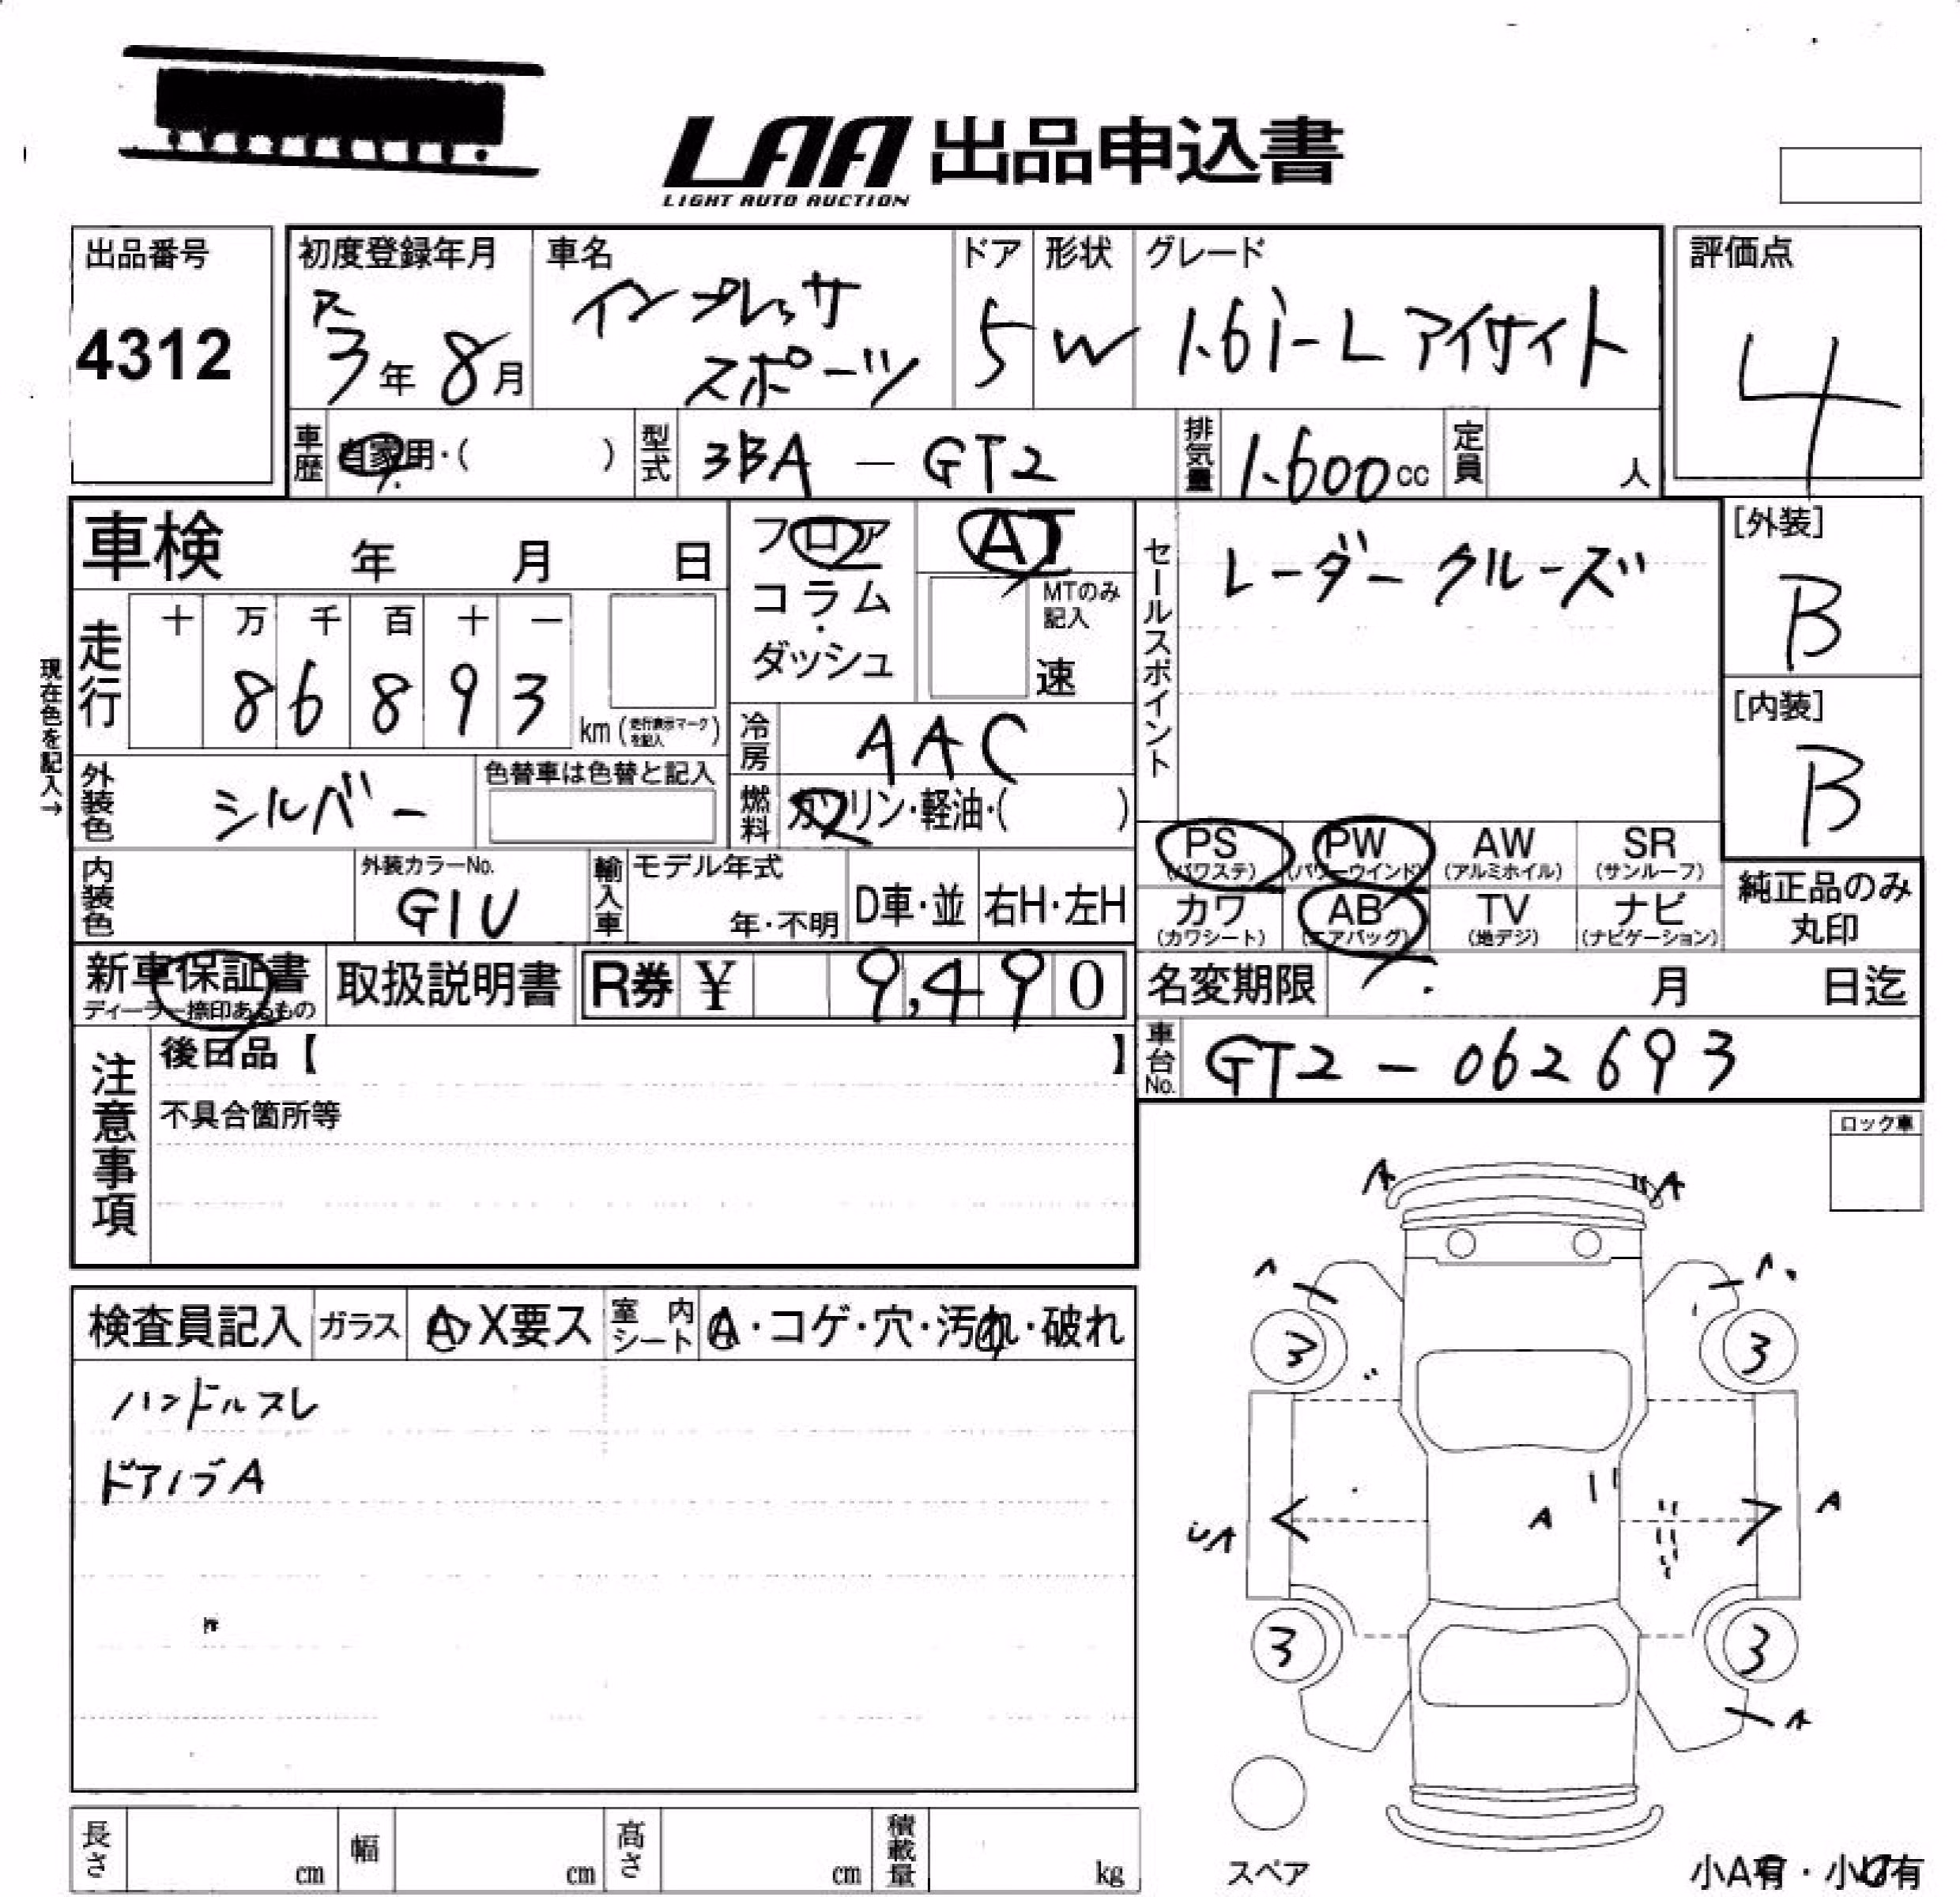 LAA 出品申込書
LIGHT AUTO AUCTION
出品番号
4312
初度登録年月
R
3年 8月
車名
インプレッサ
スポーツ
ドア
5
形状
W
グレード
1.6i-L アイサイト
評価点
4
車歴 自家用・( )
型式 3BA - GT2
排気量 1.600cc
定員 人
車検 年 月 日
フロア
コラム
・
ダッシュ
AT
MTのみ
記入
速
セールスポイント
レーダークルーズ
[外装]
B
[内装]
B
現在色を記入→
走行
十 万 千 百 十 一
8 6 8 9 3
km (走行表示マークを記入)
冷房 AAC
外装色 シルバー
色替車は色替と記入
燃料 ガソリン・軽油・( )
PS
(パワステ)
PW
(パワーウインド)
AW
(アルミホイル)
SR
(サンルーフ)
カワ
(カワシート)
AB
(エアバッグ)
TV
(地デジ)
ナビ
(ナビゲーション)
純正品のみ
丸印
内装色
外装カラーNo.
G1U
輸入車
モデル年式
年・不明
D車・並
右H・左H
新車保証書
ディーラー捺印あるもの
取扱説明書
R券 ¥ 9,490
名変期限 月 日迄
車台No. GT2-062693
注意事項
後日品【 】
不具合箇所等
ロック車
検査員記入
ガラス A・X要ス
室内シート A・コゲ・穴・汚れ・破れ
ハンドルスレ
ドアノブA
A
A
3
3
A
A
3
3
A
スペア
長さ cm
幅 cm
高さ cm
積載量 kg
小A有・小U有